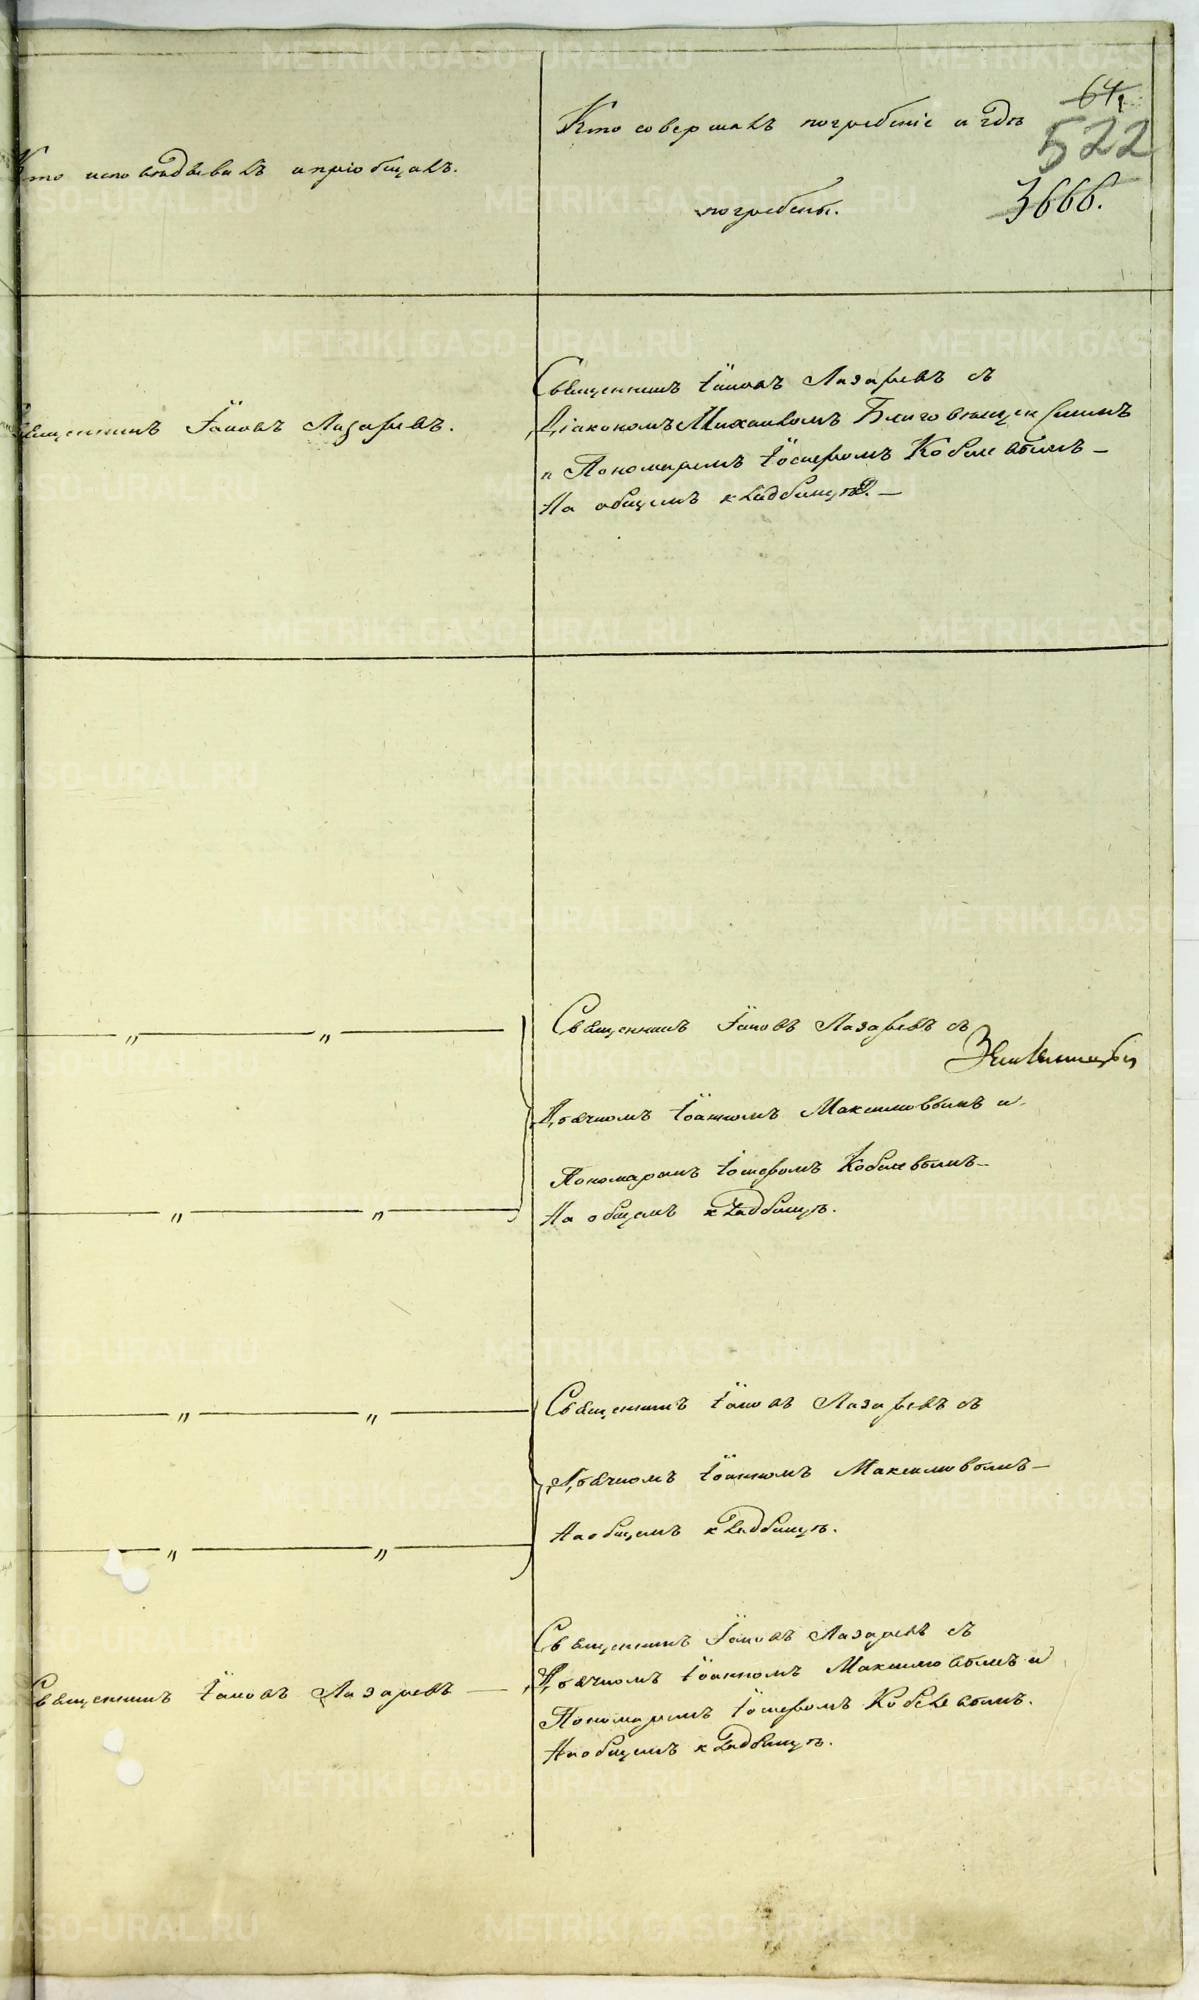 Кто исповѣдывалъ и пріобщалъ.
Кто совершалъ погребеніе и гдѣ
погребены.
64
522
3666.
Священникъ Іаковъ Лазаревъ.
Священникъ Іаковъ Лазаревъ съ
Діакономъ Михаиломъ Благовѣщенскимъ
и Пономаремъ Іосифомъ Кобылевымъ –
На общемъ кладбищѣ. –
— „ — „ —
Священникъ Іаковъ Лазаревъ съ
Дьячкомъ Іоанномъ Максимовымъ и
Пономаремъ Іосифомъ Кобелевымъ –
На общемъ кладбищѣ.
— „ — „ —
— „ — „ —
Священникъ Іаковъ Лазаревъ съ
Дьячкомъ Іоанномъ Максимовымъ –
На общемъ кладбищѣ.
— „ — „ —
Священникъ Іаковъ Лазаревъ —
Священникъ Іаковъ Лазаревъ съ
Дьячкомъ Іоанномъ Максимовымъ и
Пономаремъ Іосифомъ Кобелевымъ.
На общемъ кладбищѣ.
METRIKI.GASO-URAL.RU